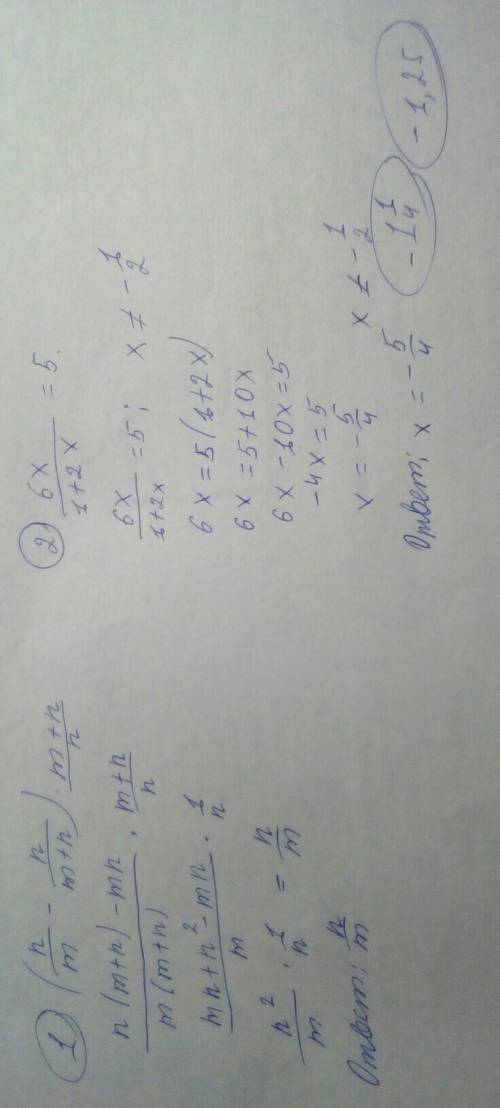 1) (n/m - n/(m+n)) · (m+n)/n
(n(m+n) - mn)/(m(m+n)) · (m+n)/n
(mn+n² - mn)/m · 1/n
n²/m · 1/n = n/m
Ответ: n/m
2) 6x/(1+2x) = 5.
6x/(1+2x) = 5; x ≠ -1/2
6x = 5(1+2x)
6x = 5+10x
6x - 10x = 5
-4x = 5
x = -5/4 x ≠ -1/2
Ответ: x = -5/4 -1 1/4, -1,25